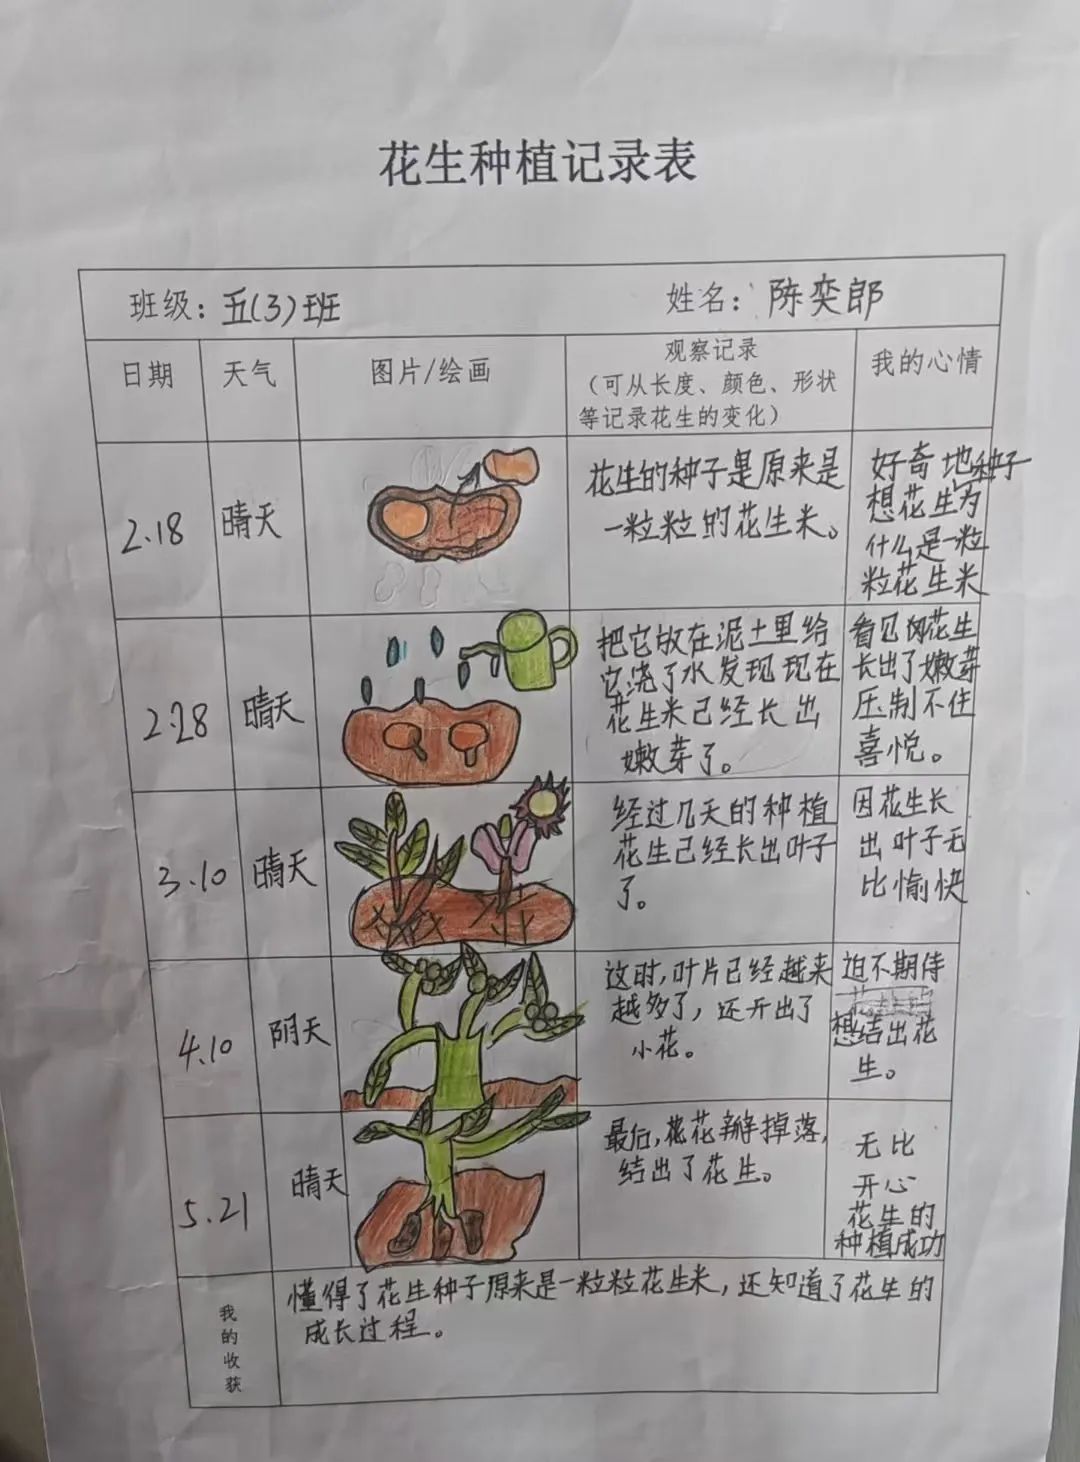 花生种植记录表
班级：五(3)班
姓名：陈奕郎
日期
天气
图片/绘画
观察记录
（可从长度、颜色、形状
等记录花生的变化）
我的心情
2.18
晴天
花生的种子是原来是
一粒粒的花生米。
好奇地种子
想花生为
什么是一粒
粒花生米
2.28
晴天
把它放在泥土里给
它浇了水发现现在
花生米已经长出
嫩芽了。
看见的花生
长出了嫩芽
压制不住
喜悦。
3.10
晴天
经过几天的种植
花生已经长出叶子
了。
因花生长
出叶子无
比愉快
4.10
阴天
这时,叶片已经越来
越多了，还开出了
小花。
迫不期待
想结出花
生。
5.21
晴天
最后,花花瓣掉落,
结出了花生。
无比
开心
花生的
种植成功
我的收获
懂得了花生种子原来是一粒粒花生米，还知道了花生的
成长过程。